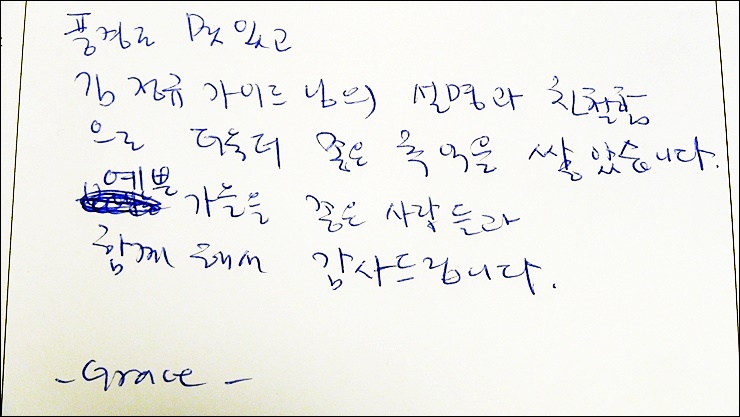 풍경도 멋있고
김정규 가이드님의 설명과 친절함
으로 더욱더 좋은 추억을 쌓았습니다.
예쁜 가을을 좋은 사람들과
함께 해서 감사드립니다.
- Grace -